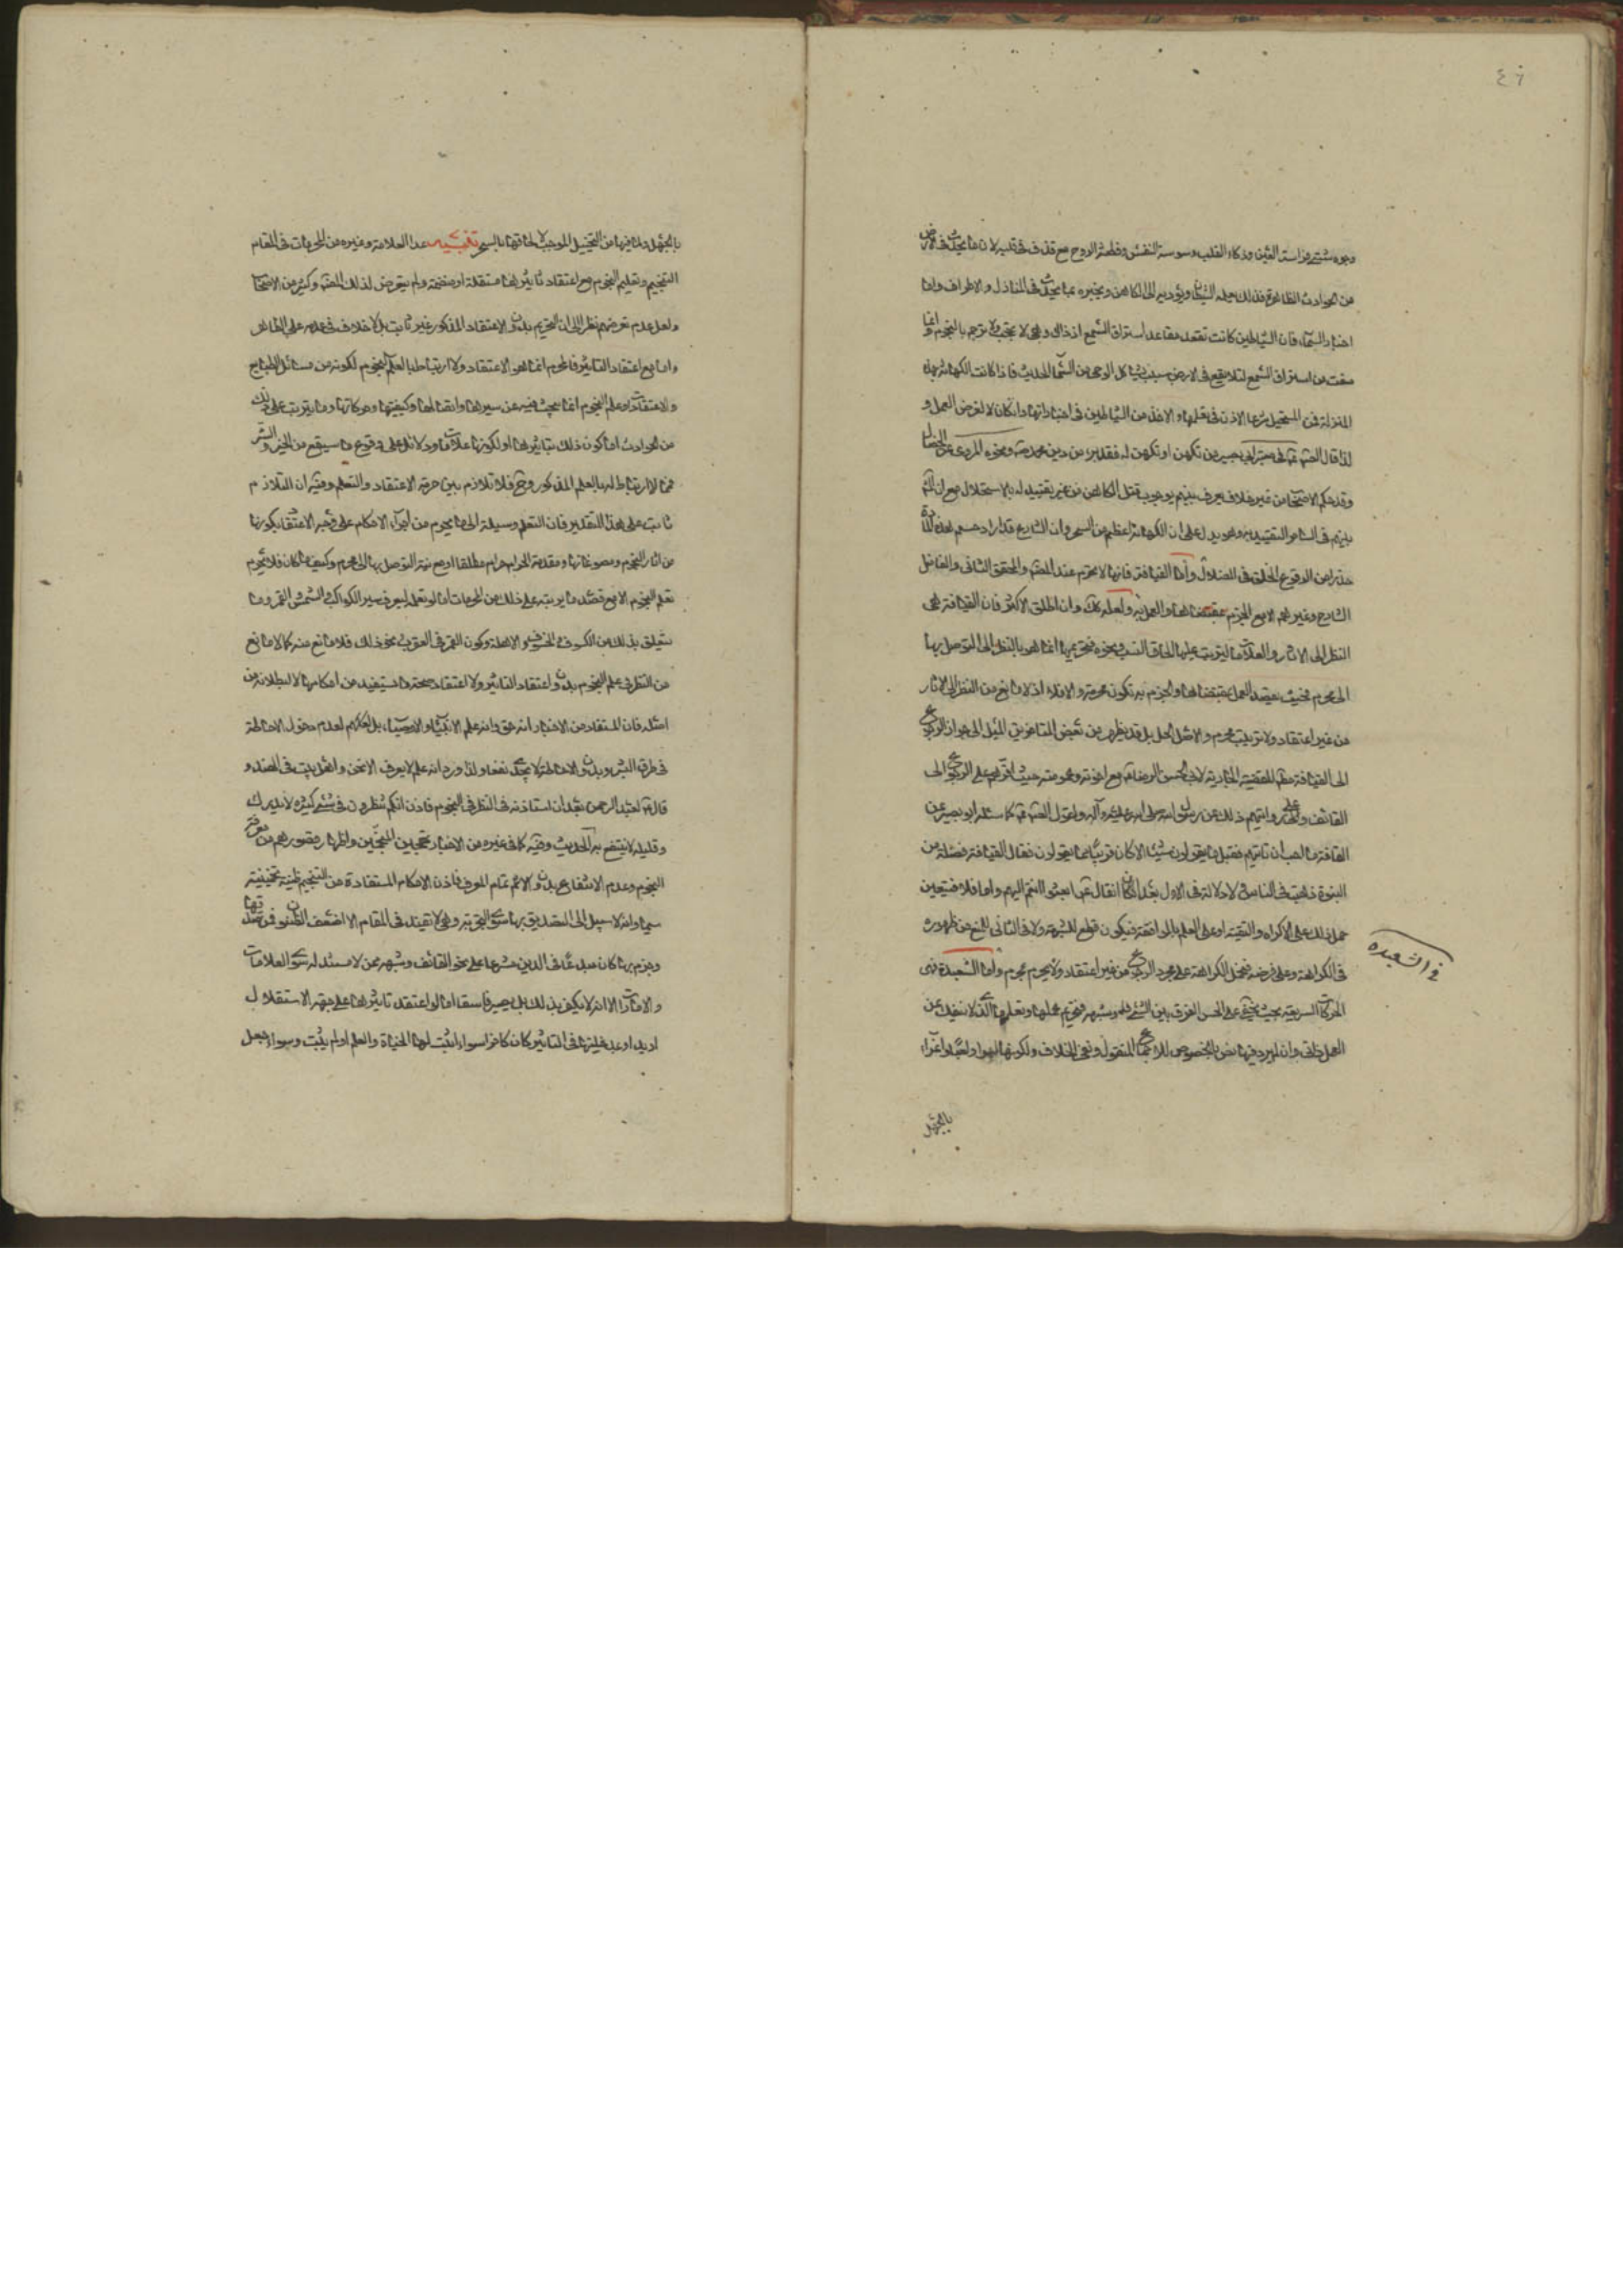 ٤٦
وجوه شتى فراسة العين وذكاء القلب ووسوسة النفس وفطنة الروح مع قذف في قلبه لان ما يحدث في الارض
من الحوادث الظاهرة فذلك يعلم الشيطان ويؤديه الى الكاهن ويخبره بما يحدث في المنازل والاطراف واما
اخبار السماء فان الشياطين كانت تقعد مقاعد استراق السمع اذ ذاك وهي لا تحجب ولا ترجم بالنجوم وانما
منعت من استراق السمع لئلا يقع في الارض سبب يشاكل الوحي من السماء الحديث فاذا كانت الكهانة بهذه
المنزلة فمن المستحيل شرعا الاذن في تعلمها والاخذ من الشياطين في اخباراتها وان كان لا لغرض العمل و
لذا قال الصادق في خبر ابي بصير من تكهن او تكهن له فقد برء من دين محمد ونحوه المروي عن الخصال
وقد حكم الاصحاب من غير خلاف يعرف بينهم بوجوب قتل الكاهن من غير تقييد له بالاستحلال مع ان
بينهم في الساحر التقييد به وهو يدل على ان الكهانة اعظم من السحر وان الشارع قد اراد حسم هذه المادة
حذرا من الوقوع الخلق في الضلال واما القيافة فانها لا تحرم عند المصنف والمحقق الثاني والفاضل
الشارح وغيرهم الا مع الجزم بمقتضاها والعمل به ولعله كك وان اطلق الاكثر فان القيافة هي
النظر الى الاثار والعلامات ليترتب عليها الحاق النسب ونحوه فتحريمها انما هو بالنظر الى التوصل بها
الى محرم فحيث يقصد العمل بمقتضاها والجزم به تكون محرمة والا فلا اذ لا مانع من النظر الى الاثار
من غير اعتقاد ولا ترتيب محرم والاصل الحل بل قد يظهر من بعض المتاخرين الميل الى جواز الرجوع
الى القيافة نظرا للقضية الجارية لابي الحسن الرضا مع اخوته وعمومته حيث اقرهم على الرجوع الى
القائف وروايتهم ذلك عن رسول الله صلى الله عليه وآله ولقول الصادق كما سئله ابو بصير عن
القافة ما احب ان تاتيهم فقيل ما يقولون شيئا الا كان قريبا مما يقولون فقال القيافة فضلة من
النبوة ذهبت في الناس ولا دلالة في الاول بعد ان قال ابعثوا انتم اليهم واما انا فلا فيتعين
حمل ذلك على الاكراه والتقية او على العلم بالموافقة فيكون قطع للشبهة ولا في الثاني لمنع من ظهوره
في الكراهة وعلى فرضه فتحمل الكراهة على مجرد الرجوع من غير اعتقاد ولا يحرم محرم واما الشعبدة فهي
الحركات السريعة بحيث يخفى على الحس الفرق بين الشيء وشبهه فتحريم عملها وتعلمها الذي لا ينفك عن
العمل خاف وان لم يرد فيها نص بالخصوص للاجماع المنقول ونفي الخلاف ولكونها لهوا ولعبا واغراء
بالجهل
في الشعبده
بالجهل ولما فيها من التخييل الموجب لالحاقها بالسحر تنبيه عد العلامة وغيره من المحرمات في المقام
التنجيم وتعليم النجوم مع اعتقاد تاثيرها مستقلة او منضمة ولم يتعرض لذلك المصنف وكثير من الاصحاب
ولعل عدم تعرضهم نظرا الى ان التحريم بدون الاعتقاد المذكور غير ثابت بل لا خلاف في عدمه على الظاهر
واما مع اعتقاد التاثير فالمحرم انما هو الاعتقاد ولا ارتباط بالعلم بالنجوم لكونه من مسائل الطبايع
والاعتقادات وعلم النجوم انما يبحث فيه عن سيرها واتصالها وكيفيتها وحركاتها وما يترتب على ذلك
من الحوادث اما كون ذلك بتاثيرها او لكونها علامات ودلائل على وقوع ما سيقع من الخير والشر
مما لا ارتباط له بالعلم المذكور وح فلا تلازم بين حرمة الاعتقاد والتعلم وفيه ان التلازم
ثابت على هذا التقدير فان التعلم وسيلة الى ما يحرم من اجراء الاحكام على وجه الاعتقاد بكونها
من اثار النجوم ومصنوعاتها ومقدمة الحرام حرام مطلقا او مع نية التوصل بها الى محرم وكيف ما كان فلا يحرم
تعلم النجوم الا مع قصد ما يرتبه على ذلك من المحرمات اما لو تعلمه ليعرف سير الكواكب والشمس والقمر وما
يتعلق بذلك من الكسوف والخسوف والاهلة وكون القمر في العقرب ونحو ذلك فلا مانع منه كما لا مانع
من النظر في علم النجوم بدون اعتقاد التاثير ولا اعتقاد صحة ما يستفيد من احكامها لا لبطلانه من
اصله فان المستفاد من الاخبار انه حق وانه علم الانبياء والاوصياء بل لعدم حصول الاحاطة
في طرق البشر وبدون الاحاطة لا يجدي نفعا ولذا ورد انه علم لا يعرفه الا نحن واهل بيت في الهند و
قال لعبد الرحمن بعد ان استاذنه في النظر في النجوم فاذن انكم تنظرون في شيء كثيره لا يدرك
وقليله لا ينتفع به الحديث وفيه كما في غيره من الاخبار تعجيز المنجمين واظهار قصورهم عن معرفة
النجوم وعدم الانتفاع بدون العلم تمام المعرفة فاذن الاحكام المستفادة من التنجيم ظنية تخمينية
سيما وانه لا سبيل الى التصديق بها سوى التجربة وهي لا تفيد في المقام الا اضعف الظنون فمن تعبد بها
وجزم بها كان مبدعا في الدين مشرعا على نحو القائف وشبهه ممن لا مستند له سوى العلامات
والامارات الا انه لا يكفر بذلك بل يصير فاسقا اما لو اعتقد تاثيرها على جهة الاستقلال
او بدو او مدخليتها في التاثير كان كافرا سواء اثبت لها الحياة والعلم او لم يثبت وسواء جعل